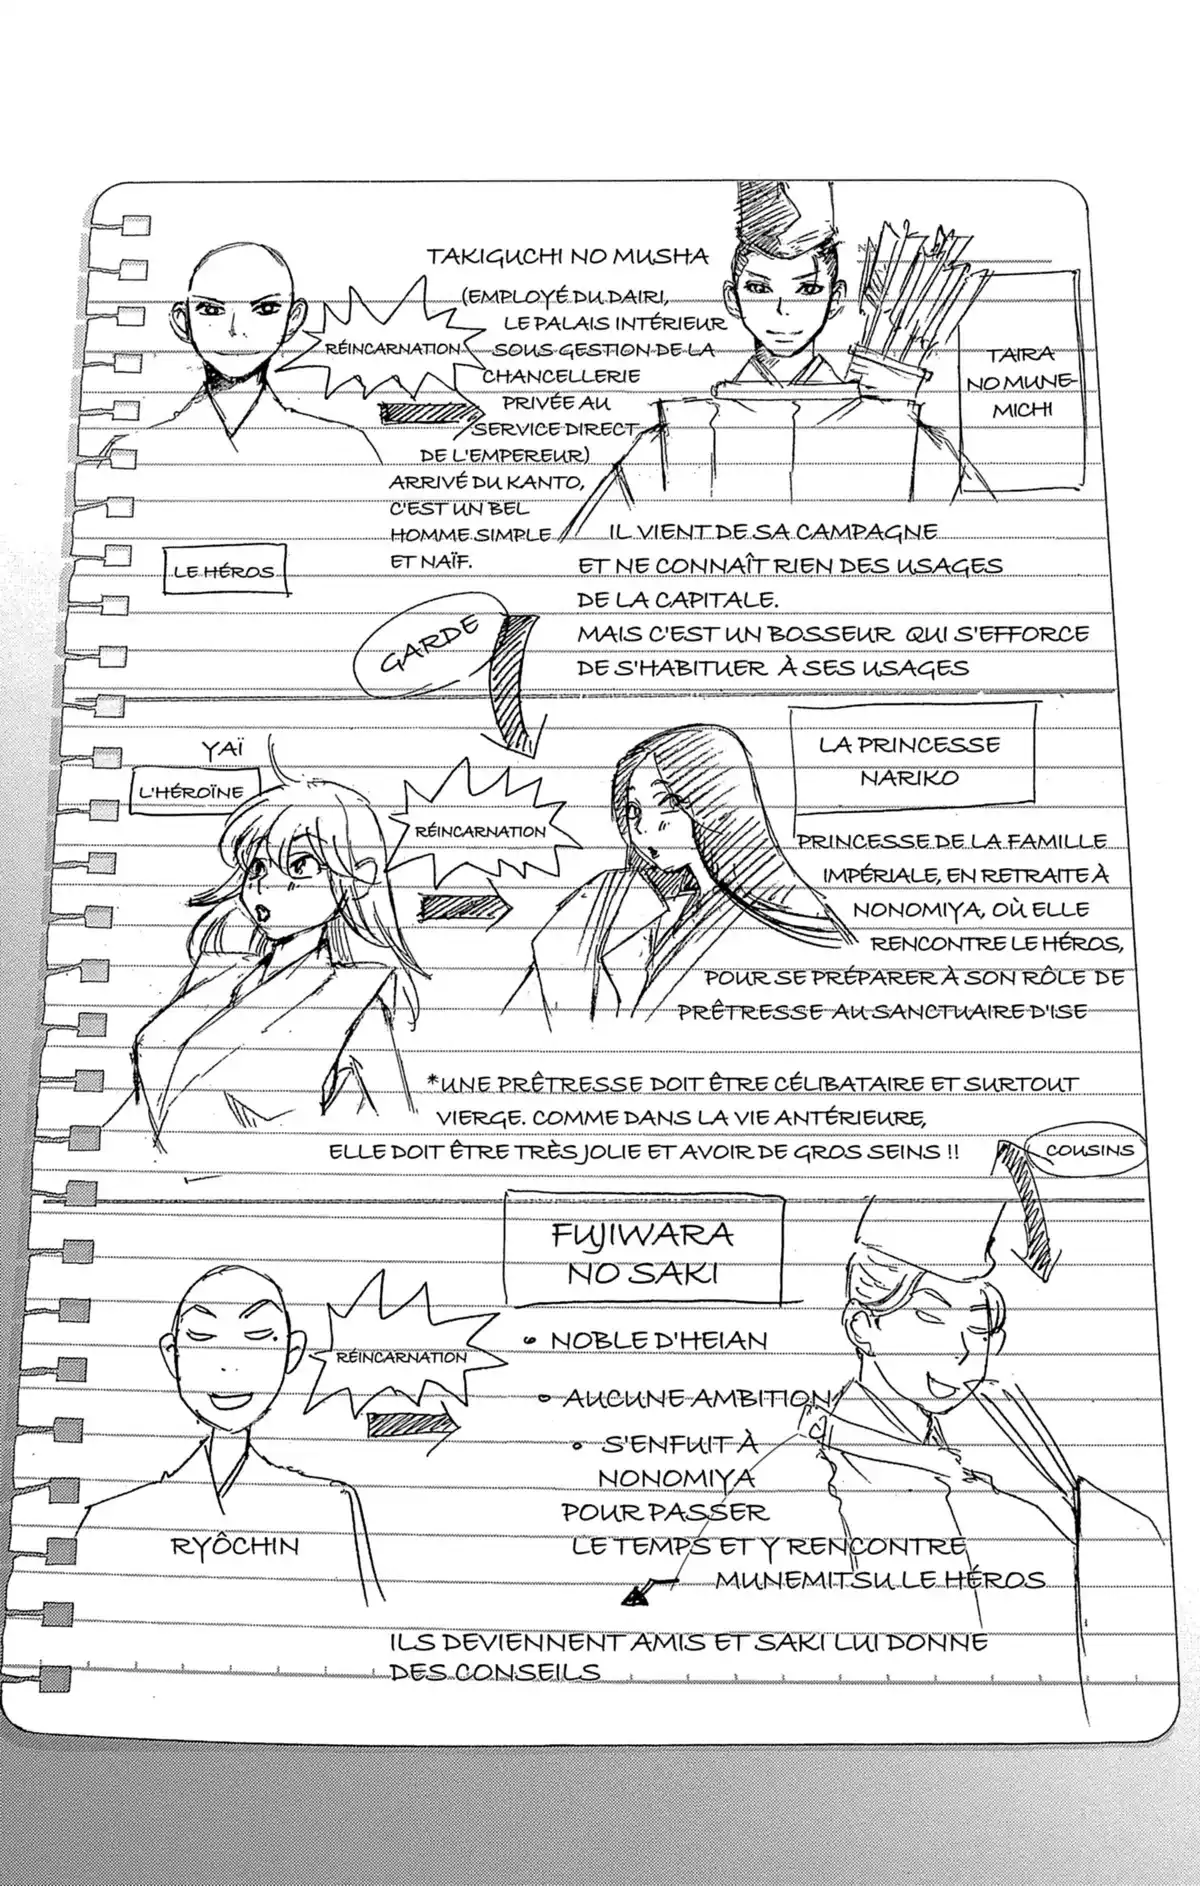 TAKIGUCHI NO MUSHA
(EMPLOYÉ DU DAIRI,
LE PALAIS INTÉRIEUR
SOUS GESTION DE LA
CHANCELLERIE
PRIVÉE AU
SERVICE DIRECT
DE L'EMPEREUR)
ARRIVÉ DU KANTO,
C'EST UN BEL
HOMME SIMPLE
ET NAÏF.
RÉINCARNATION
TAIRA
NO MUNE-
MICHI
LE HÉROS
IL VIENT DE SA CAMPAGNE
ET NE CONNAÎT RIEN DES USAGES
DE LA CAPITALE.
MAIS C'EST UN BOSSEUR QUI S'EFFORCE
DE S'HABITUER À SES USAGES
GARDE
YAÏ
L'HÉROÏNE
RÉINCARNATION
LA PRINCESSE
NARIKO
PRINCESSE DE LA FAMILLE
IMPÉRIALE, EN RETRAITE À
NONOMIYA, OÙ ELLE
RENCONTRE LE HÉROS,
POUR SE PRÉPARER À SON RÔLE DE
PRÊTRESSE AU SANCTUAIRE D'ISE
*UNE PRÊTRESSE DOIT ÊTRE CÉLIBATAIRE ET SURTOUT
VIERGE. COMME DANS LA VIE ANTÉRIEURE,
ELLE DOIT ÊTRE TRÈS JOLIE ET AVOIR DE GROS SEINS !!
COUSINS
FUJIWARA
NO SAKI
RÉINCARNATION
• NOBLE D'HEIAN
• AUCUNE AMBITION
• S'ENFUIT À
NONOMIYA
POUR PASSER
LE TEMPS ET Y RENCONTRE
MUNEMITSU LE HÉROS
RYÔCHIN
ILS DEVIENNENT AMIS ET SAKI LUI DONNE
DES CONSEILS